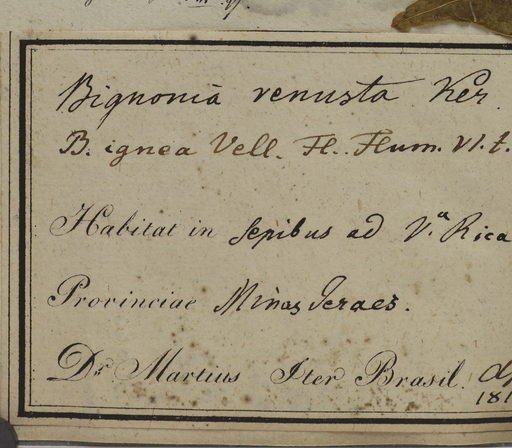 Bignonia venusta Ker.
B. ignea Vell. Fl. Flum. VI. t.
Habitat in sepibus ad V.ª Rica
Provinciae Minas Geraes.
Dr. Martius Iter Brasil.
181